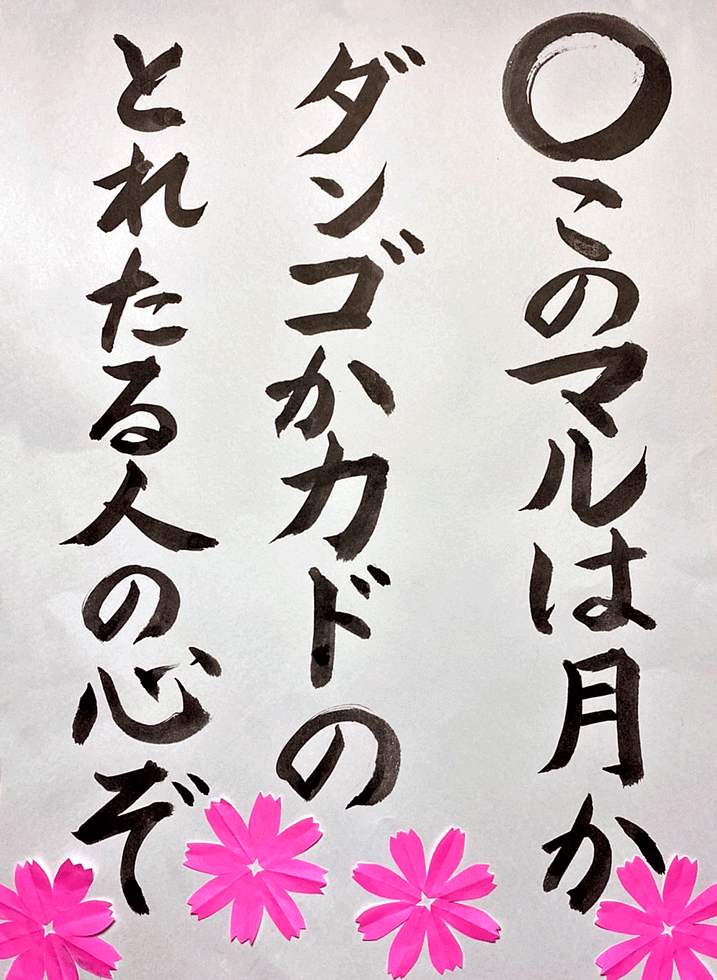 〇このマルは月か
ダンゴかカドの
とれたる人の心ぞ